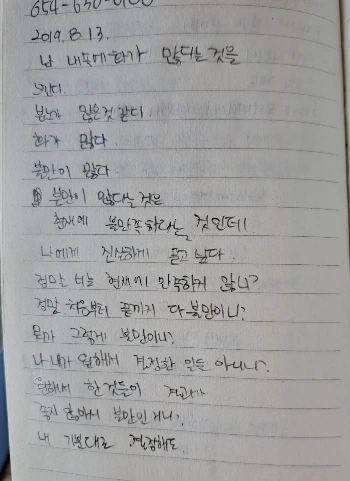 2019. 8. 13.
난 내속에 화가 많다는 것을
느낀다.
분노가 많은것 같다
화가 많다
불만이 많다
불만이 많다는 것은
현재에 불만족하다는 것인데
나에게 진심하게 묻고 싶다.
너는 현재에 만족하지 않니?
정말 처음부터 끝까지 다 불만이니?
뭐가 그렇게 불만이니?
다 내가 원해서 결정한 일들 아니니?
원해서 한것들이 결과가
좋지 않아서 불만인거니?
내 기분대로 결정해도